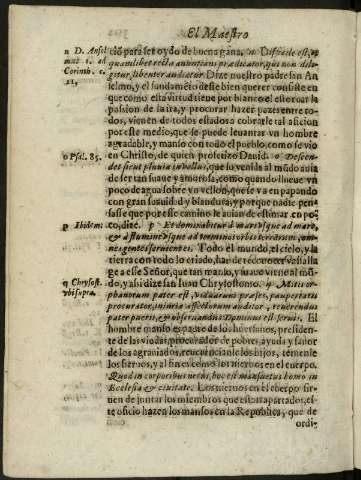 El Maestro
n D. Ansel
mus 1. ad
Corinth. c.
13.
ció para ser oydo de buena gana. n Difficile est, vt
quamlibet recta annuntians prædicator, qui non dili-
gitur, libenter audiatur. Dize nuestro padre san An
selmo, y el fundamẽto deste bien querer consiste en
que como esta virtud tiene por blanco el estoruar la
passion de la ira, y procurar hazer pazes entre to-
dos, vienen de todos estados a cobrarle tal aficion
por este medio, que se puede leuantar vn hombre
agradable, y manso con todo el pueblo, como se vio
o Psal. 85.
en Christo, de quien profetizo Dauid. o Descen-
det sicut pluuia in vellus, que su venida al mũdo auia
de ser tan suaue y amorosa, como quando llueue vn
poco de agua sobre vn vellon, que se va empapando
con gran suauidad y blandura, y porque nadie pen-
sasse que por este camino le auian de estimar en po-
p Ibidem.
co, dize. p Et dominabitur à mari vsque ad mare,
& à flumine vsque ad terminos orbis terrarum, om-
nes gentes seruient ei. Todo el mundo, el cielo, y la
tierra con todo lo criado, han de reconocer vassalla
ge a este Señor, que tan manso, y suaue viene al mũ-
q Chrysost.
vbi supra.
do, y assi dize san Iuan Chrysostomo. q Mitis or-
phanorum pater est, viduarum præses, paupertatis
procurator, iniuria affectorum auditor, reuerendus
pater pueris, & obseruandus Dominus est seruis. El
hombre manso es padre de los huerfanos, presidente
de las viudas, procurador de pobres, ayuda y fauor
de los agrauiados, reuerencianle los hijos, temenle
los sieruos, y al fin es como los nieruos en el cuerpo.
Quod in corporibus neruus, hoc est mansuetus homo in
Ecclesia & ciuitate. Los nieruos en el cuerpo sir-
uen de juntar los miembros que estan apartados, es-
te oficio hazen los mansos en la Republica, que de
ordi-